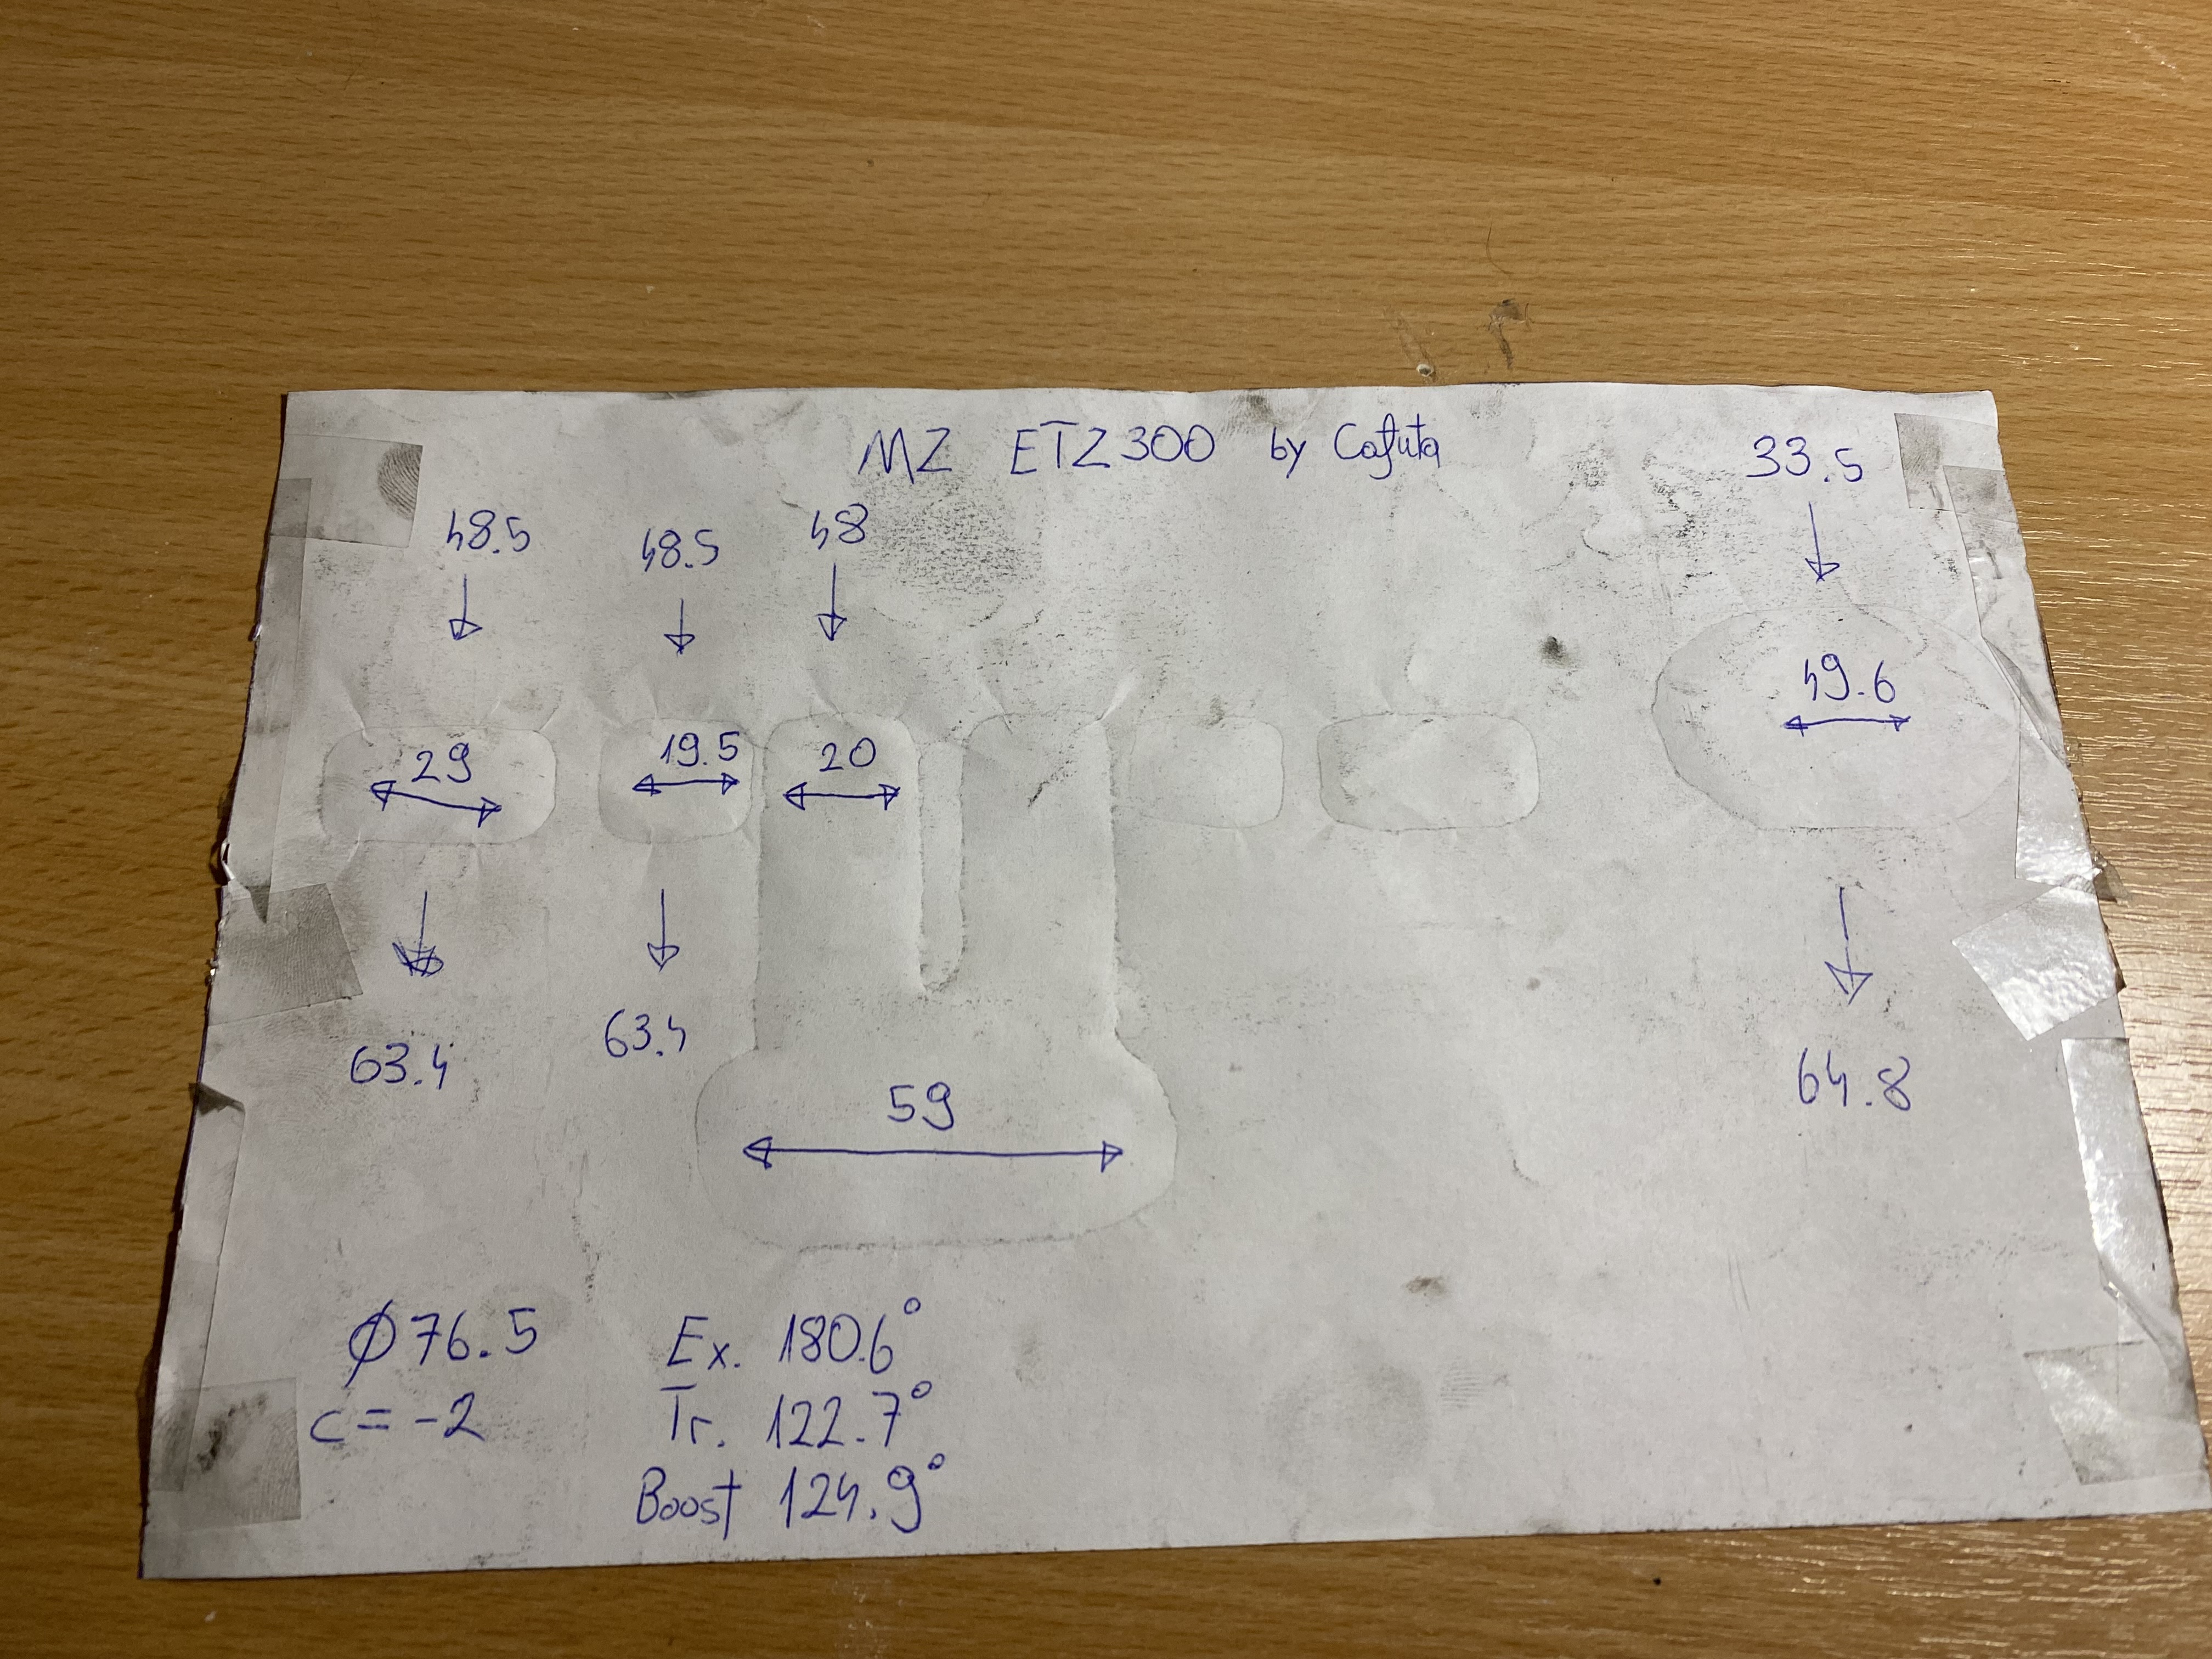 MZ ETZ300 by Cafuta
33.5
48.5
48.5
48
49.6
29
19.5
20
63.4
63.4
64.8
59
Ø76.5
c=-2
Ex. 180.6°
Tr. 122.7°
Boost 124.9°